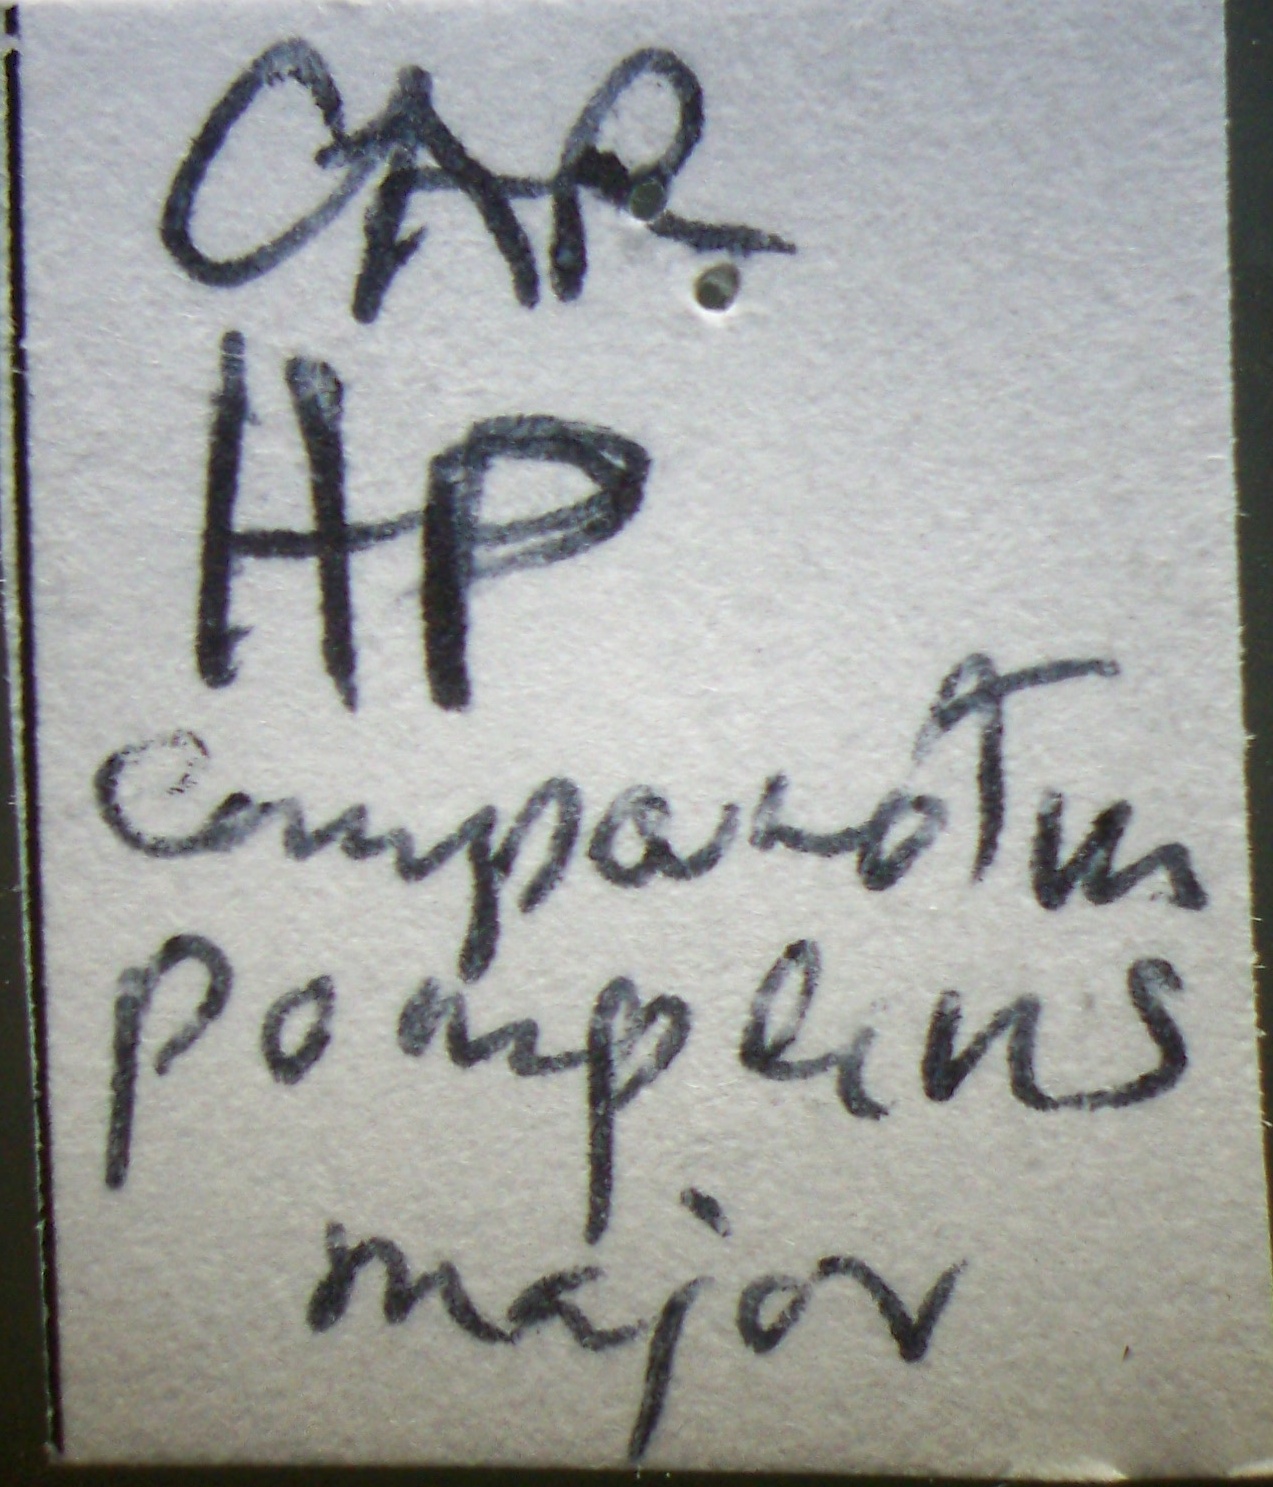 CAR
HP
Camponotus
pompeius
major